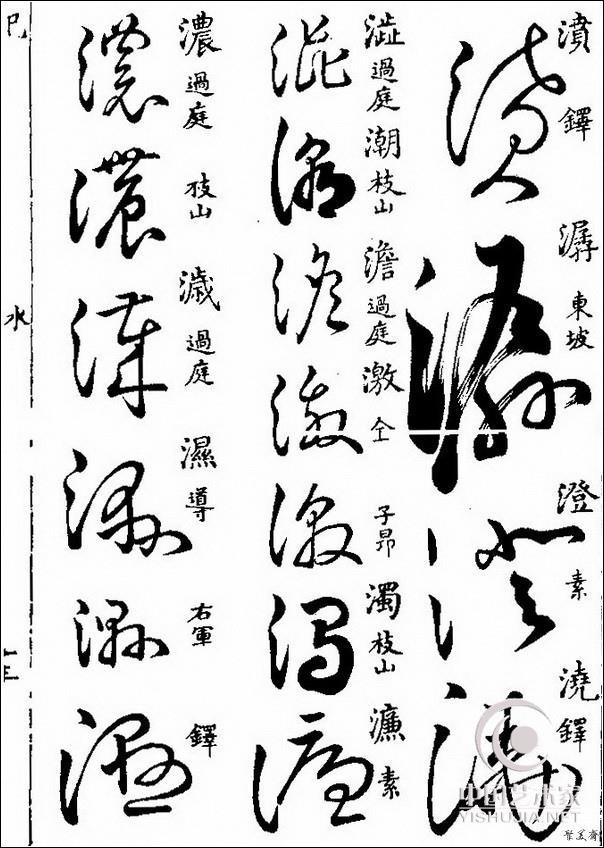 濆 鐸
潺 東坡
澄 素
澆 鐸
澁 過庭
潮 枝山
澹 過庭
激 仝
子昂
濁 枝山
濂 素
濃 過庭
枝山
濊 過庭
濕 導
右軍
鐸
巳
水
十三
中国艺术家
YISHUJIA.NET
聚美齋